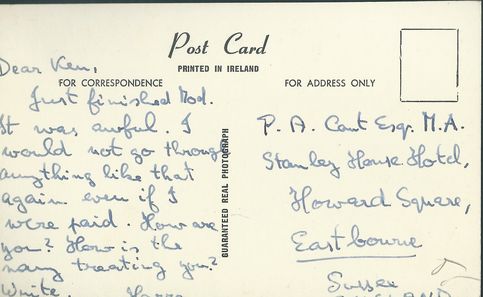 Post Card
PRINTED IN IRELAND
FOR CORRESPONDENCE
FOR ADDRESS ONLY
GUARANTEED REAL PHOTOGRAPH
Dear Ken,
Just finished Mod.
It was awful. I
would not go through
anything like that
again even if I
were paid. How are
you? How is the
navy treating you?
Write.
P. A. Cant Esqr. M.A.
Stanley House Hotel,
Howard Square,
Eastbourne
Sussex
ENGLAND